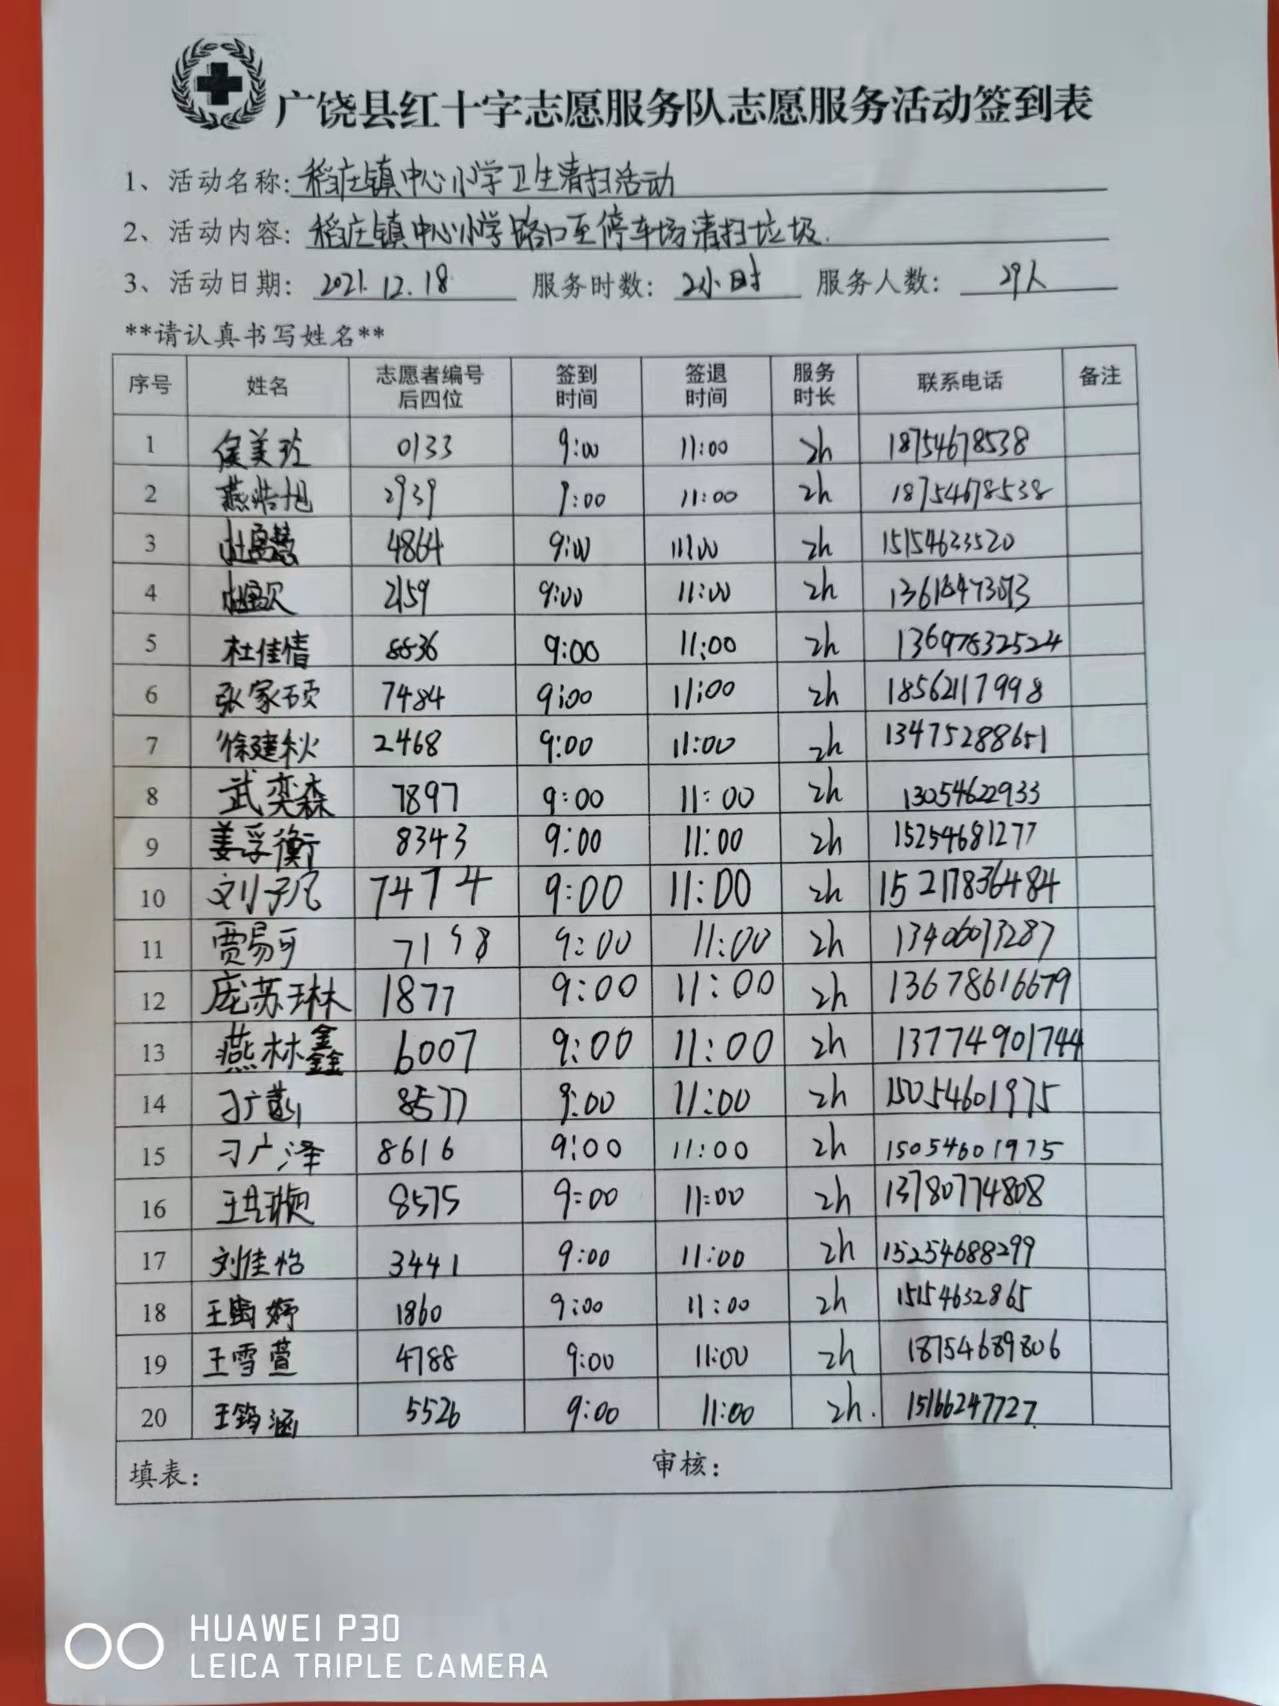 广饶县红十字志愿服务队志愿服务活动签到表
1、活动名称:稻庄镇中心小学卫生清扫活动
2、活动内容:稻庄镇中心小学路口至停车场清扫垃圾.
3、活动日期: 2021.12.18 服务时数: 2小时 服务人数: 29人
**请认真书写姓名**
序号 姓名 志愿者编号后四位 签到时间 签退时间 服务时长 联系电话 备注
1 侯美玲 0133 9:00 11:00 2h 18754678538
2 燕浩旭 2939 9:00 11:00 2h 18754678538
3 4864 9:00 11:00 2h 15154633520
4 2159 9:00 11:00 2h
5 杜佳倩 8836 9:00 11:00 2h 13697832524
6 张家硕 7484 9:00 11:00 2h 18562117998
7 徐建秋 2468 9:00 11:00 2h 13475288651
8 武奕森 7897 9:00 11:00 2h 13054622933
9 姜孚衡 8343 9:00 11:00 2h 15254681277
10 刘子凡 7474 9:00 11:00 2h 15217836484
11 贾易可 7198 9:00 11:00 2h 13406073287
12 庞苏琳 1877 9:00 11:00 2h 13678616679
13 燕林鑫 6007 9:00 11:00 2h 13774901744
14 8577 9:00 11:00 2h 15054601975
15 刁广泽 8616 9:00 11:00 2h 15054601975
16 8575 9:00 11:00 2h 13780774808
17 刘佳怡 3441 9:00 11:00 2h 15254688299
18 1860 9:00 11:00 2h 15154632865
19 王雪萱 4788 9:00 11:00 2h 18754689806
20 王筠涵 5526 9:00 11:00 2h. 15166247727
填表: 审核:
HUAWEI P30
LEICA TRIPLE CAMERA